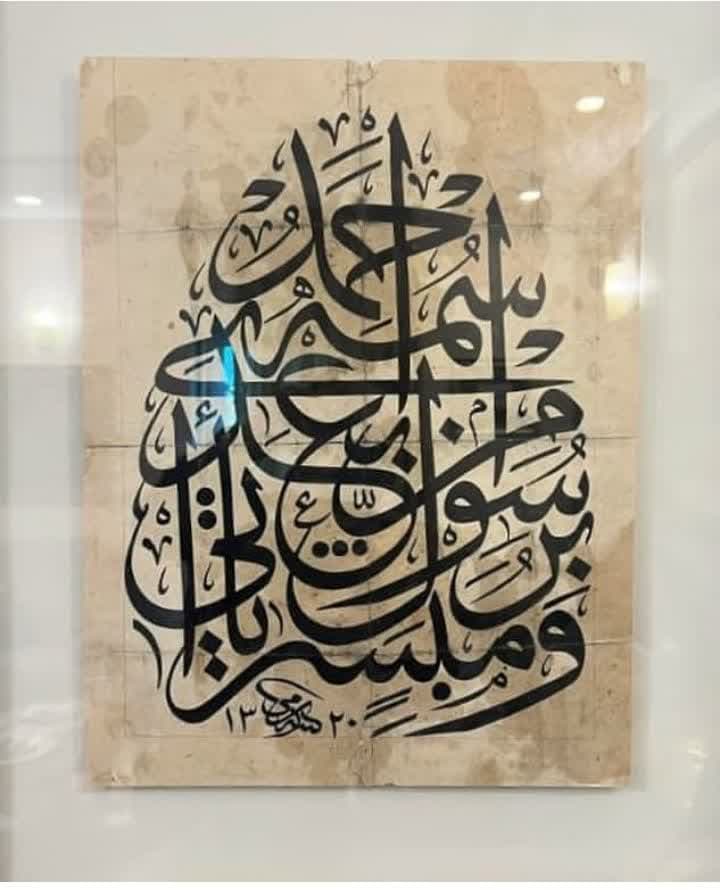 ومبشرا برسول يأتي من بعدي اسمه احمد
١٣٢٠